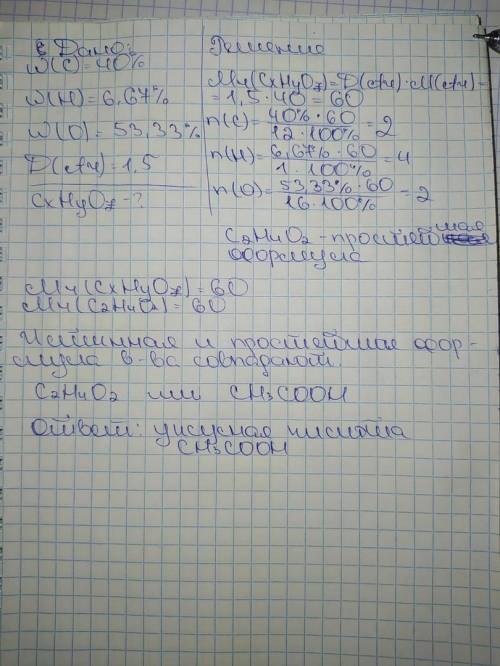 в Дано:
W(C)=40%
W(H)=6,67%
W(O)=53,33%
D(Ar)=1,5
CxHyOz-?
Решение
Mr(CxHyOz)=D(Ar)·M(Ar)=
=1,5·40=60
n(C)=40%·60/12·100%=2
n(H)=6,67%·60/1·100%=4
n(O)=53,33%·60/16·100%=2
C2H4O2-простейшая
формула
Mr(CxHyOz)=60
Mr(C2H4O2)=60
Истинная и простейшая фор-
мула в-ва совпадают.
C2H4O2 или CH3COOH
Ответ: уксусная кислота
CH3COOH